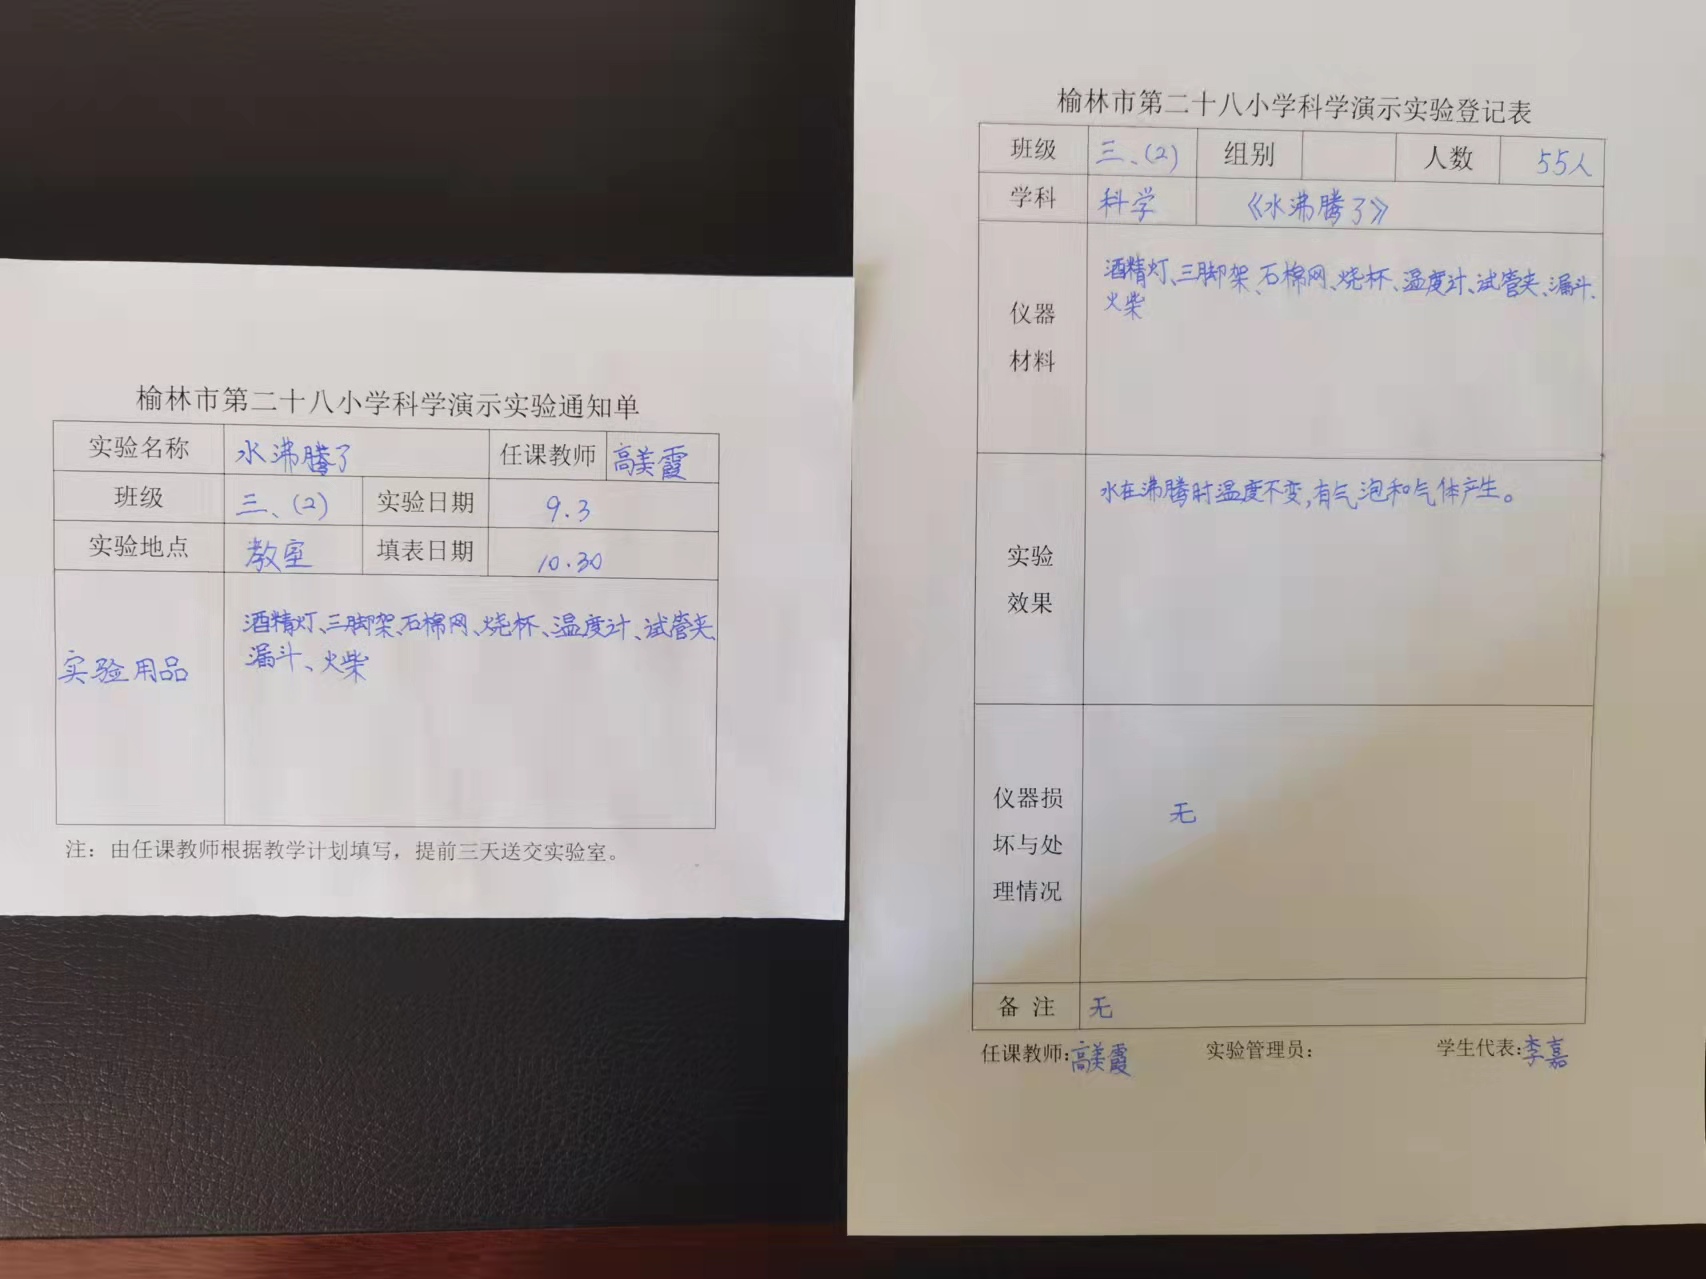 榆林市第二十八小学科学演示实验通知单
实验名称 水沸腾了 任课教师 高美霞
班级 三、(2) 实验日期 9.3
实验地点 教室 填表日期 10.30
实验用品
酒精灯、三脚架、石棉网、烧杯、温度计、试管夹、
漏斗、火柴
注：由任课教师根据教学计划填写，提前三天送交实验室。
榆林市第二十八小学科学演示实验登记表
班级 三、(2) 组别 人数 55人
学科 科学 《水沸腾了》
仪器
材料
酒精灯、三脚架、石棉网、烧杯、温度计、试管夹、漏斗、
火柴
实验
效果
水在沸腾时温度不变,有气泡和气体产生。
仪器损
坏与处
理情况
无
备 注 无
任课教师:高美霞 实验管理员: 学生代表:李嘉